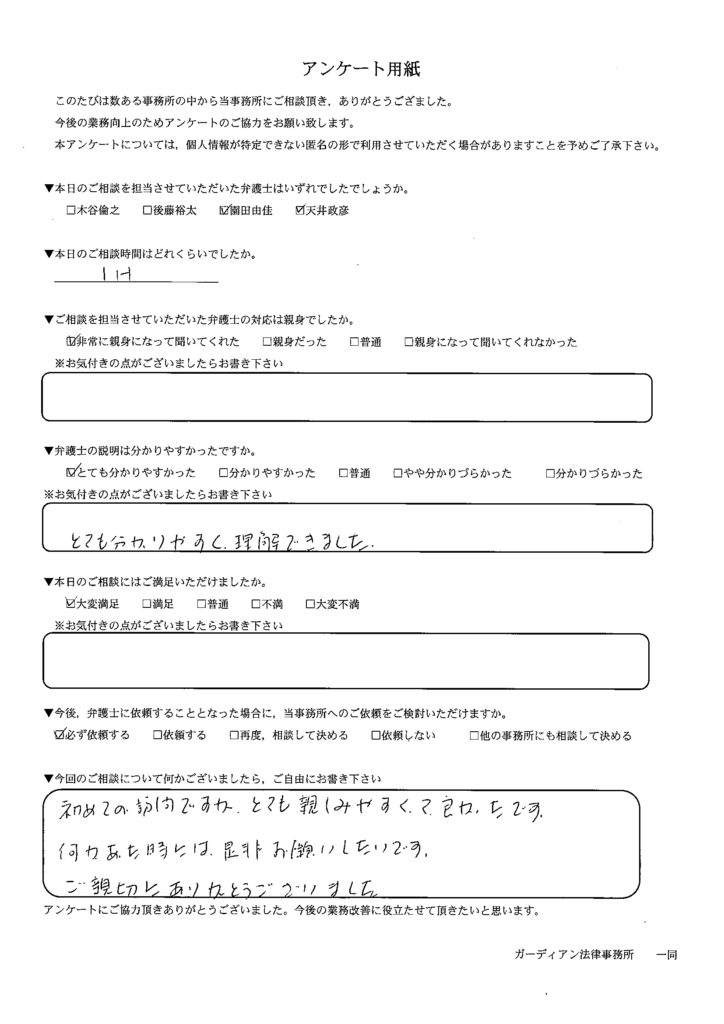 アンケート用紙
このたびは数ある事務所の中から当事務所にご相談頂き，ありがとうござました。
今後の業務向上のためアンケートのご協力をお願い致します。
本アンケートについては，個人情報が特定できない匿名の形で利用させていただく場合がありますことを予めご了承下さい。
▼本日のご相談を担当させていただいた弁護士はいずれでしたでしょうか。
□木谷倫之　□後藤裕太　☑園田由佳　☑天井政彦
▼本日のご相談時間はどれくらいでしたか。
1H
▼ご相談を担当させていただいた弁護士の対応は親身でしたか。
☑非常に親身になって聞いてくれた　□親身だった　□普通　□親身になって聞いてくれなかった
※お気付きの点がございましたらお書き下さい
▼弁護士の説明は分かりやすかったですか。
☑とても分かりやすかった　□分かりやすかった　□普通　□やや分かりづらかった　□分かりづらかった
※お気付きの点がございましたらお書き下さい
とても分かりやすく、理解できました.
▼本日のご相談にはご満足いただけましたか。
☑大変満足　□満足　□普通　□不満　□大変不満
※お気付きの点がございましたらお書き下さい
▼今後，弁護士に依頼することとなった場合に，当事務所へのご依頼をご検討いただけますか。
☑必ず依頼する　□依頼する　□再度，相談して決める　□依頼しない　□他の事務所にも相談して決める
▼今回のご相談について何かございましたら，ご自由にお書き下さい
初めての訪問ですが、とても親しみやすくて、良かったです.
何かあった時には、是非お願いしたいです.
ご親切にありがとうございました
アンケートにご協力頂きありがとうございました。今後の業務改善に役立たせて頂きたいと思います。
ガーディアン法律事務所　一同